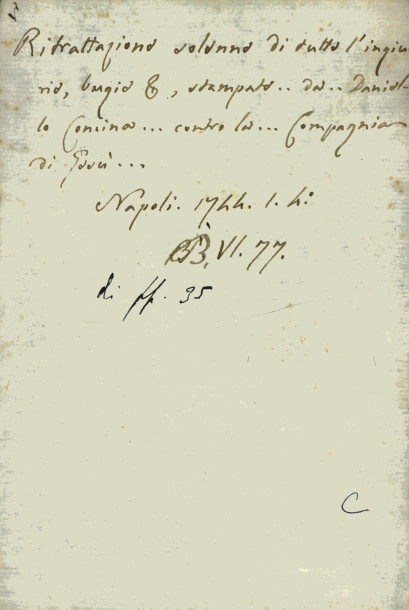 Ritrattazione solenne di tutte l'ingiu
rie, bugie &, stampate.. da.. Daniel-
lo Concina... contro la... Compagnia
di Gesù...
Napoli. 1744. 1. 4:
VI. 77.
di ff. 35
C